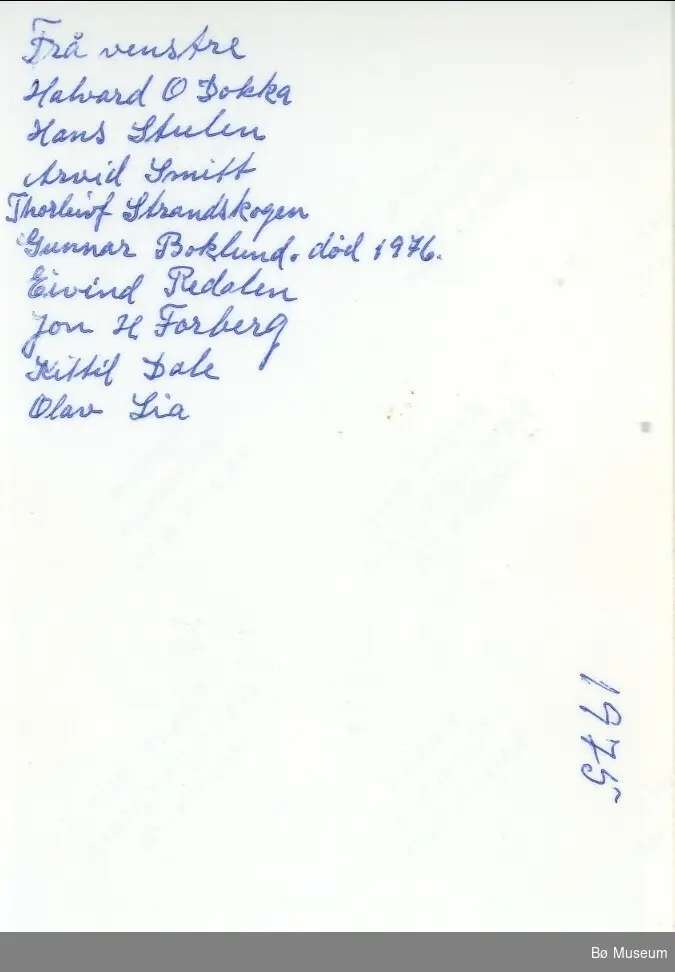 Frå venstre
Halvard O Dokka
Hans Stulen
Arvid Smitt
Thorleif Strandskogen
Gunnar Boklund. død 1976.
Eivind Redalen
Jon H Forberg
Kittil Dale
Olav Lia
1975
Bø Museum